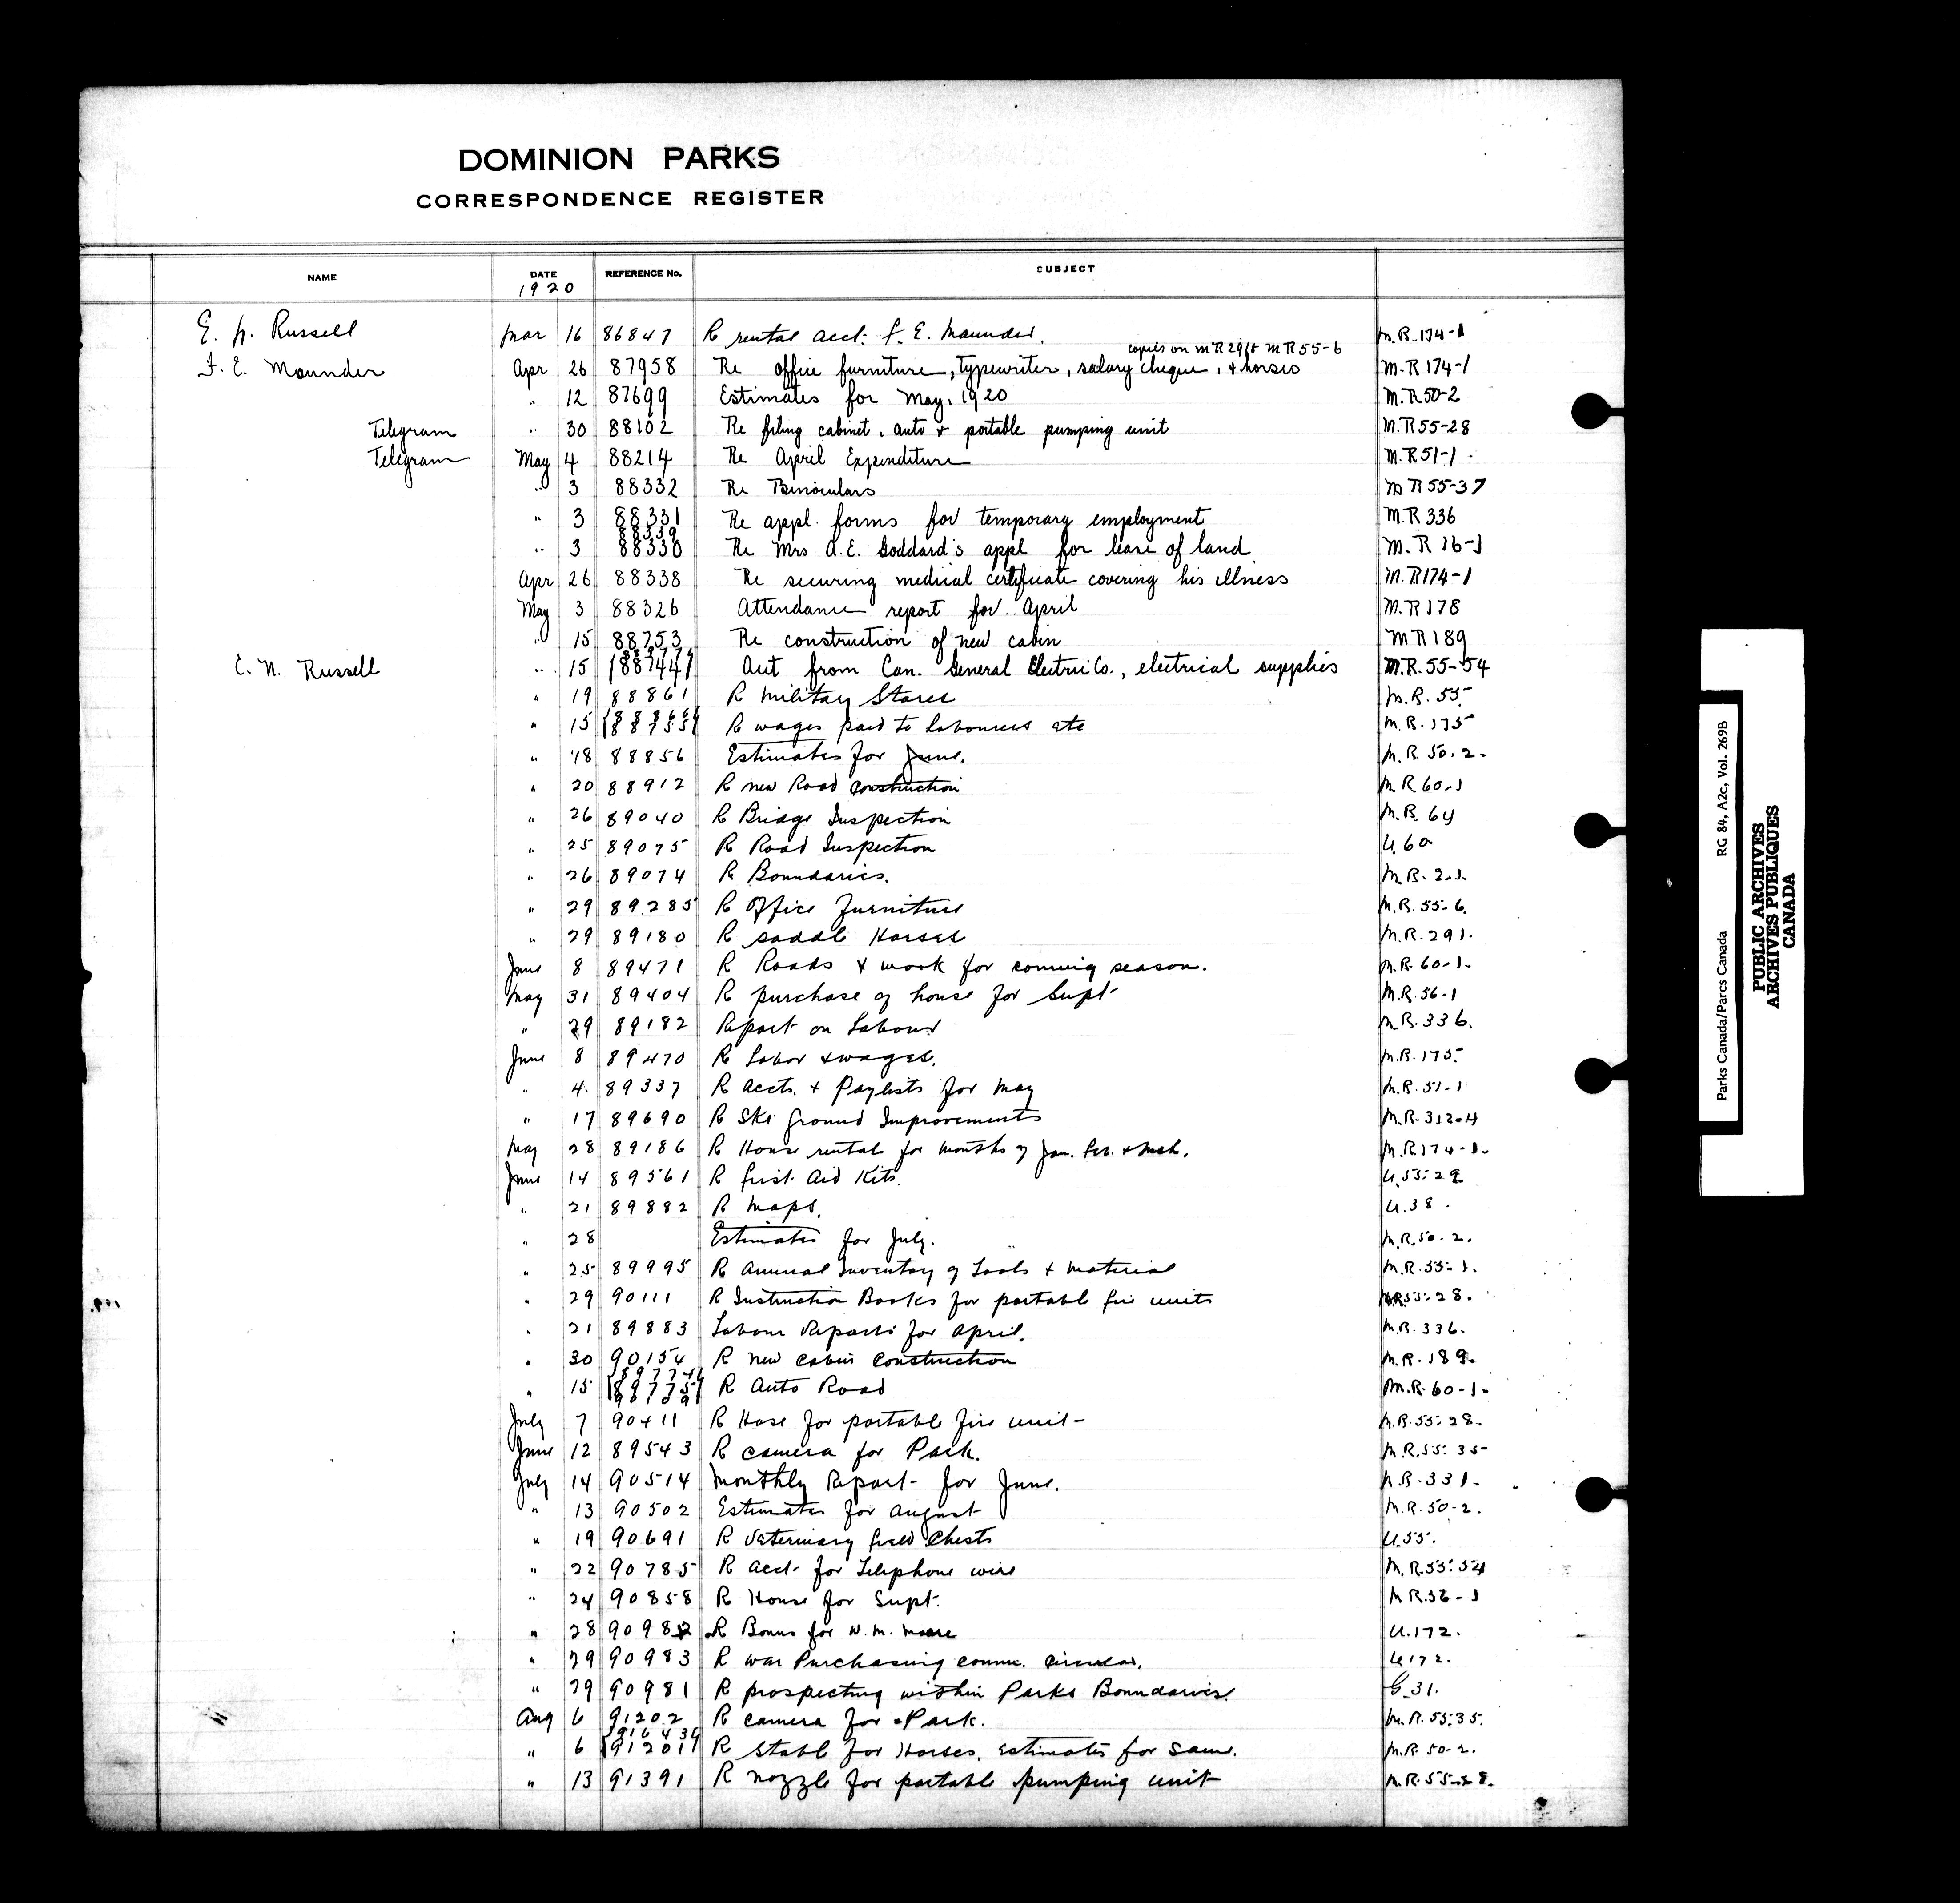 DOMINION PARKS
CORRESPONDENCE REGISTER
NAME DATE REFERENCE No. SUBJECT
1920
E. N. Russell Mar 16 86847 R rental acct. F. E. Maunder. M.R. 174-1
copies on MR 291 & MR 55-6
F. E. Maunder Apr 26 87958 Re office furniture, typewriter, salary cheque, & horses M.R 174-1
" 12 87699 Estimates for May, 1920 M.R 50-2
Telegram " 30 88102 Re filing cabinet, auto & portable pumping unit M.R 55-28
Telegram May 4 88214 Re April Expenditure M.R 51-1
" 3 88332 Re Binoculars M R 55-37
" 3 88331 Re appl. forms for temporary employment M.R 336
88339
" 3 88330 Re Mrs. A.E. Goddard's appl for lease of land M.R 16-1
Apr 26 88338 Re securing medical certificate covering his illness M.R 174-1
May 3 88326 Attendance report for April M.R 178
" 15 88753 Re construction of new cabin M R 189
E. N. Russell " 15 88744 Acct from Can. General Electric Co., electrical supplies M.R. 55-54
" 19 88861 R Military Stores M.R. 55
" 15 88755 R wages paid to Labourers etc M.R. 175
" 18 88856 Estimates for June. M.R. 50.2.
" 20 88912 R new Road Construction M.R 60-1
" 26 89040 R Bridge Inspection M.R. 64
" 25 89075 R Road Inspection U.60
" 26 89074 R Boundaries. M.R. 2.1.
" 29 89285 R Office Furniture M.R. 55-6.
" 29 89180 R saddle Horses M.R. 291.
June 8 89471 R Roads & work for coming season. M.R. 60-1.
May 31 89404 R purchase of house for Supt M.R. 56-1
" 29 89182 Report on Labour M.R. 336.
June 8 89470 R Labor & wages. M.R. 175
" 4 89337 R accts. & Paylists for May M.R. 51-1
" 17 89690 R Ski Ground Improvements M.R. 312-4
May 28 89186 R House rental for months of Jan. Feb. & Mch. M.R 174-1.
June 14 89561 R first Aid Kits. U.55-29
" 21 89882 R Maps. U.38.
" 28 Estimates for July. M.R. 50-2.
" 25 89995 R Annual Inventory of Tools & Material M.R. 55-1.
" 29 90111 R Instruction Books for portable fire units M.R. 55-28.
" 21 89883 Labour Reports for April. M.R. 336.
" 30 90154 R new cabin construction M.R. 189.
89774
" 15 89775 R Auto Road M.R. 60-1.
July 7 90411 R Hose for portable fire unit M.R. 55-28.
June 12 89543 R camera for Park. M.R. 55-35
July 14 90514 Monthly Report for June. M.R. 331.
" 13 90502 Estimates for August M.R. 50-2.
" 19 90691 R Veterinary field Chests U.55.
" 22 90785 R acct for Telephone wire M.R. 55-54
" 24 90858 R House for Supt. M R. 56-1
" 28 90982 R Bonus for W. M. Moore U.172.
" 29 90983 R War Purchasing Comm. Circular. U.172.
" 29 90981 R prospecting within Parks Boundaries. G.31.
Aug 6 91202 R camera for Park. M.R. 55-35.
91643
" 6 91201 R Stable for Horses. Estimates for same. M.R. 50-2.
" 13 91391 R nozzle for portable pumping unit M.R. 55-28.
Parks Canada/Parcs Canada RG 84, A2c, Vol. 269B
PUBLIC ARCHIVES
ARCHIVES PUBLIQUES
CANADA